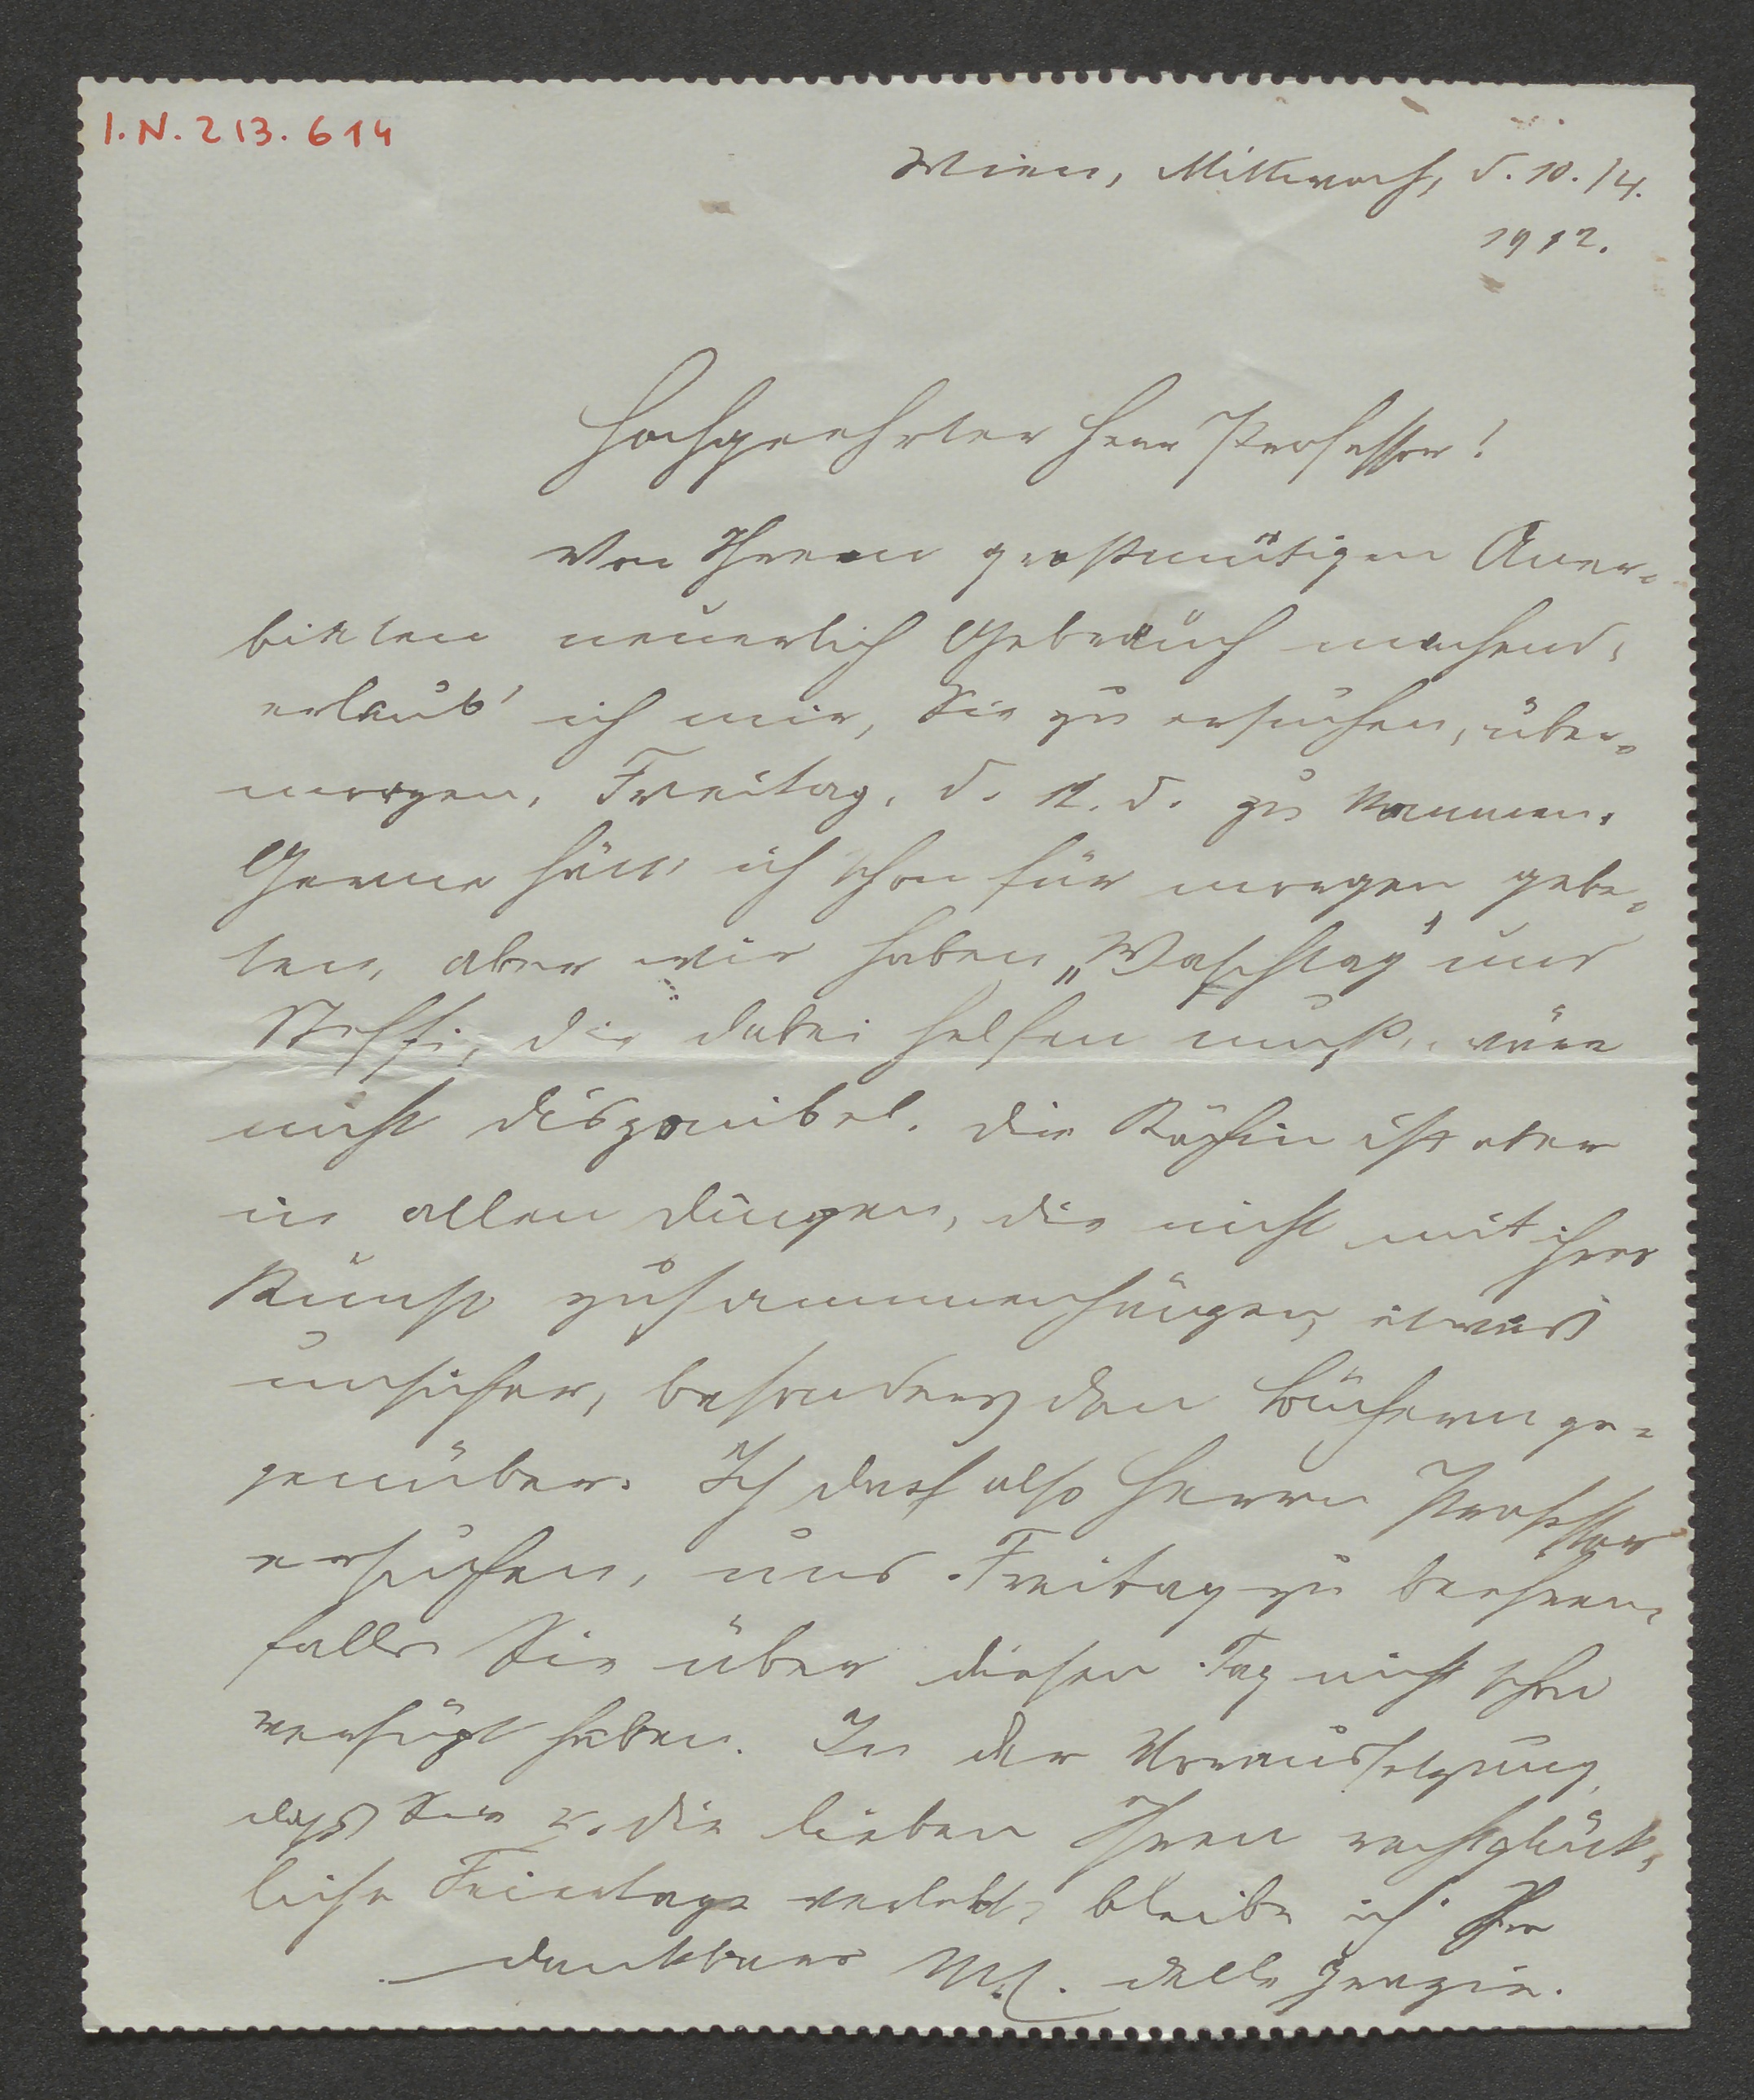 I.N. 213.614
Wien, Mittwoch, d. 10./4.
1912.
Hochgeehrter Herr Professor!
Von Ihrem großmütigen Aner-
bieten neuerlich Gebrauch machend,
erlaub' ich mir, Sie zu ersuchen, über-
morgen, Freitag, d. 12. d. zu kommen.
Gerne hätt' ich schon für morgen gebe-
ten, aber wir haben „Waschtag" und
Steffi, die dabei helfen muß, wäre
nicht disponibel. Die Köchin ist aber
in allen Dingen, die nicht mit ihrer
Kunst zusammenhängen, etwas
unsicher, besonders den Büchern ge-
genüber. Ich darf also Herrn Professor
ersuchen, uns Freitag zu beehren,
falls Sie über diesen Tag nicht schon
verfügt haben. In der Voraussetzung,
dass Sie u. die lieben Ihren recht glück-
liche Feiertage verlebt, bleibe ich Ihre
dankbare M. delle Grazie.